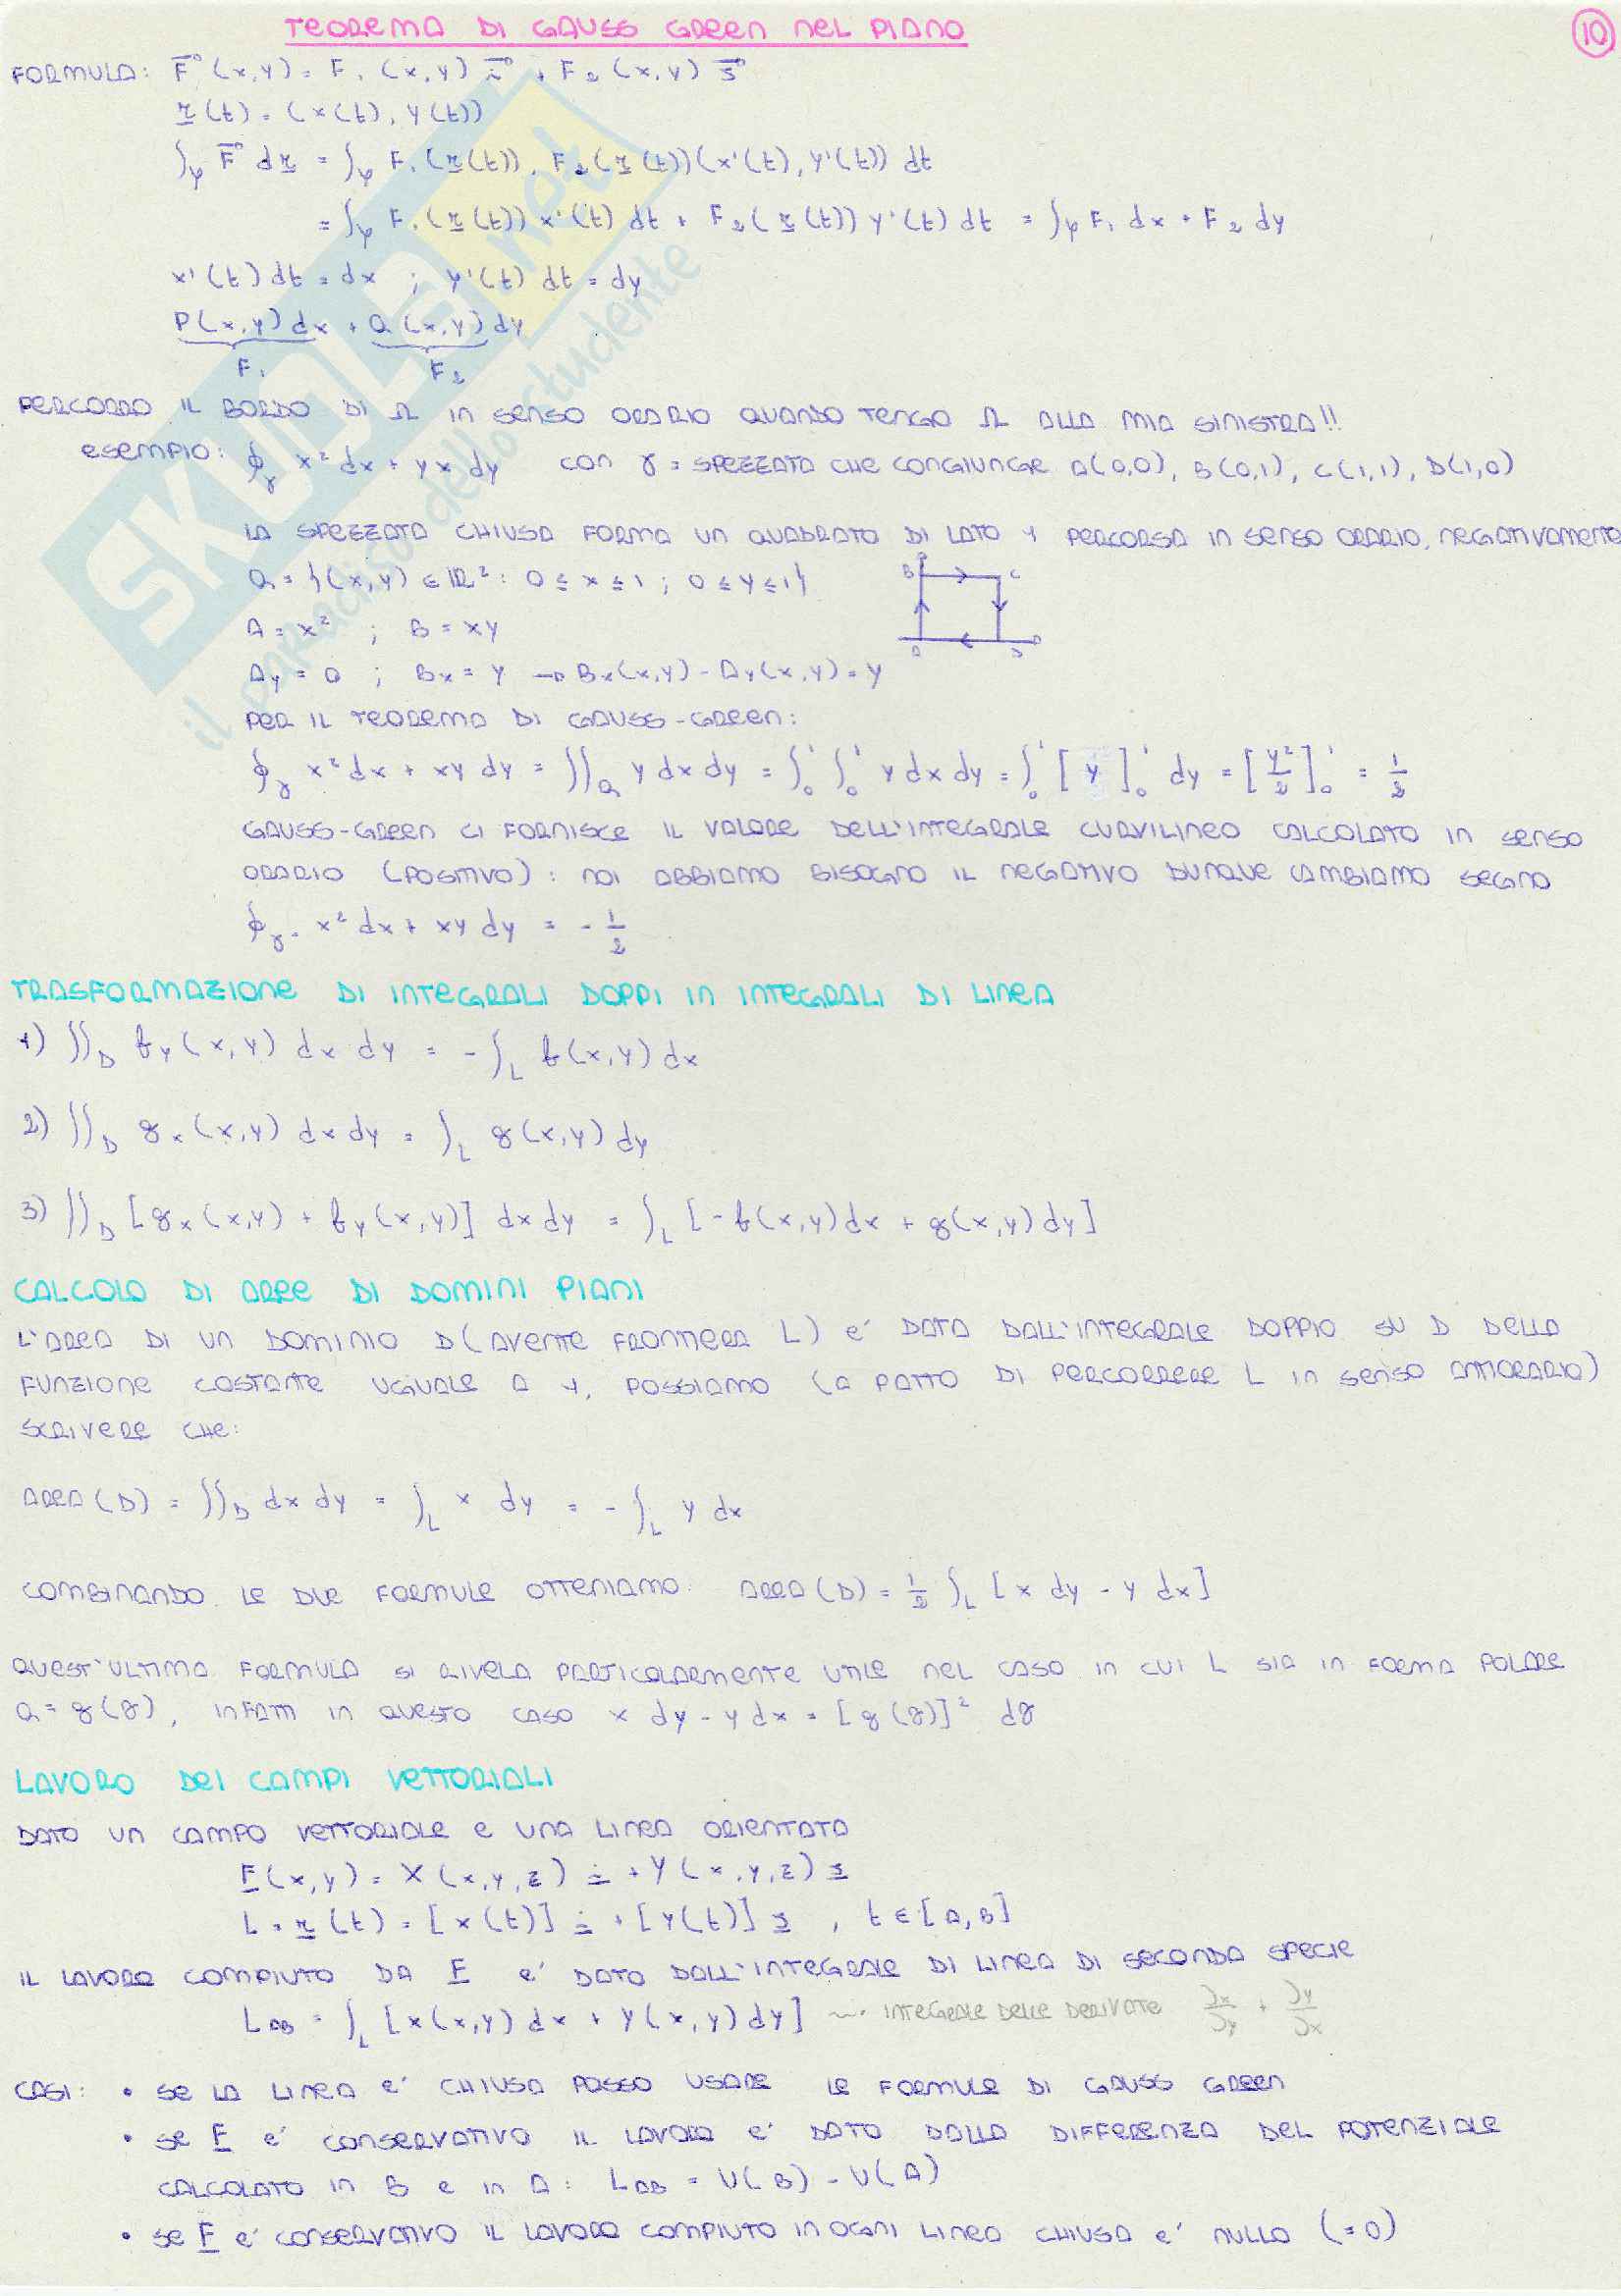 TEOREMA DI GAUSS GREEN NEL PIANO
10
FORMULA: F(x,y) = F₁(x,y) i + F₂(x,y) j
r(t) = (x(t), y(t))
∫φ F dr = ∫φ F₁(r(t)), F₂(r(t))(x'(t), y'(t)) dt
= ∫φ F₁(r(t)) x'(t) dt + F₂(r(t)) y'(t) dt = ∫φ F₁ dx + F₂ dy
x'(t) dt = dx ; y'(t) dt = dy
P(x,y) dx + Q(x,y) dy
F₁ F₂
PERCORRO IL BORDO DI Ω IN SENSO ORARIO QUANDO TENGO Ω ALLA MIA SINISTRA!!
ESEMPIO: ∮γ x² dx + yx dy CON γ = SPEZZATA CHE CONGIUNGE A(0,0), B(0,1), C(1,1), D(1,0)
LA SPEZZATA CHIUSA FORMA UN QUADRATO DI LATO 1 PERCORSA IN SENSO ORARIO, NEGATIVAMENTE
Q = {(x,y) ∈ R² : 0 ≤ x ≤ 1 ; 0 ≤ y ≤ 1}
B C
A D
A = x² ; B = xy
Ay = 0 ; Bx = y → Bx(x,y) - Ay(x,y) = y
PER IL TEOREMA DI GAUSS-GREEN:
∮γ x² dx + xy dy = ∬Q y dx dy = ∫₀¹ ∫₀¹ y dx dy = ∫₀¹ [y]₀¹ dy = [y²/2]₀¹ = 1/2
GAUSS-GREEN CI FORNISCE IL VALORE DELL'INTEGRALE CURVILINEO CALCOLATO IN SENSO
ORARIO (POSITIVO): NOI ABBIAMO BISOGNO IL NEGATIVO DUNQUE CAMBIAMO SEGNO
∮γ- x² dx + xy dy = - 1/2
TRASFORMAZIONE DI INTEGRALI DOPPI IN INTEGRALI DI LINEA
1) ∬D fy(x,y) dx dy = - ∫L f(x,y) dx
2) ∬D gx(x,y) dx dy = ∫L g(x,y) dy
3) ∬D [gx(x,y) + fy(x,y)] dx dy = ∫L [-f(x,y) dx + g(x,y) dy]
CALCOLO DI AREE DI DOMINI PIANI
L'AREA DI UN DOMINIO D (AVENTE FRONTIERA L) E' DATA DALL'INTEGRALE DOPPIO SU D DELLA
FUNZIONE COSTANTE UGUALE A 1, POSSIAMO (A PATTO DI PERCORRERE L IN SENSO ANTIORARIO)
SCRIVERE CHE:
AREA(D) = ∬D dx dy = ∫L x dy = - ∫L y dx
COMBINANDO LE DUE FORMULE OTTENIAMO: AREA(D) = 1/2 ∫L [x dy - y dx]
QUEST'ULTIMA FORMULA SI RIVELA PARTICOLARMENTE UTILE NEL CASO IN CUI L SIA IN FORMA POLARE
a = g(γ), INFATTI IN QUESTO CASO x dy - y dx = [g(γ)]² dγ
LAVORO DEI CAMPI VETTORIALI
DATO UN CAMPO VETTORIALE E UNA LINEA ORIENTATA
F(x,y) = X(x,y,z) i + Y(x,y,z) j
L = r(t) = [x(t)] i + [y(t)] j , t ∈ [A,B]
IL LAVORO COMPIUTO DA F E' DATO DALL'INTEGRALE DI LINEA DI SECONDA SPECIE
LAB = ∫L [x(x,y) dx + y(x,y) dy] INTEGRALE DELLE DERIVATE ∂x/∂y + ∂y/∂x
CASI: • SE LA LINEA E' CHIUSA POSSO USARE LE FORMULE DI GAUSS GREEN
• SE F E' CONSERVATIVO IL LAVORO E' DATO DALLA DIFFERENZA DEL POTENZIALE
CALCOLATO IN B E IN A: LAB = U(B) - U(A)
• SE F E' CONSERVATIVO IL LAVORO COMPIUTO IN OGNI LINEA CHIUSA E' NULLO (=0)
SKUOLA.net
il paradiso dello studente